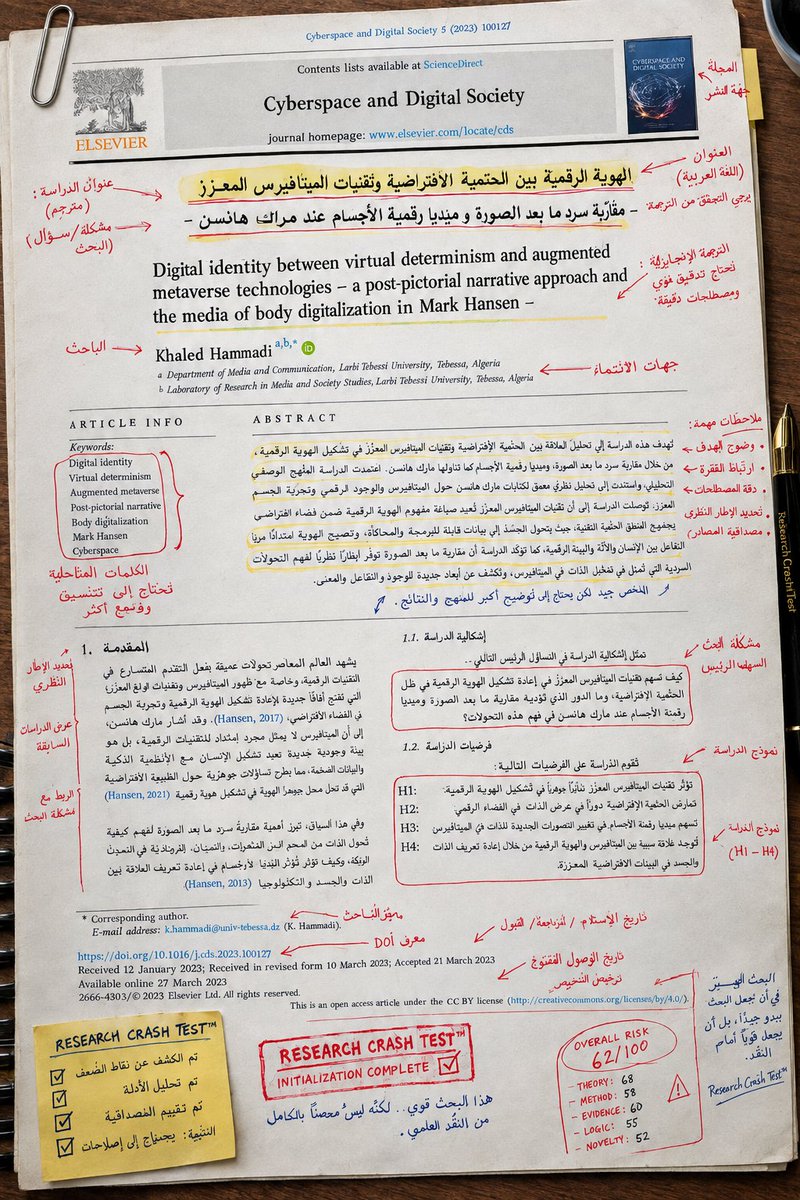 Cyberspace and Digital Society 5 (2023) 100127
Contents lists available at ScienceDirect
Cyberspace and Digital Society
journal homepage: www.elsevier.com/locate/cds
ELSEVIER
CYBERSPACE AND
DIGITAL SOCIETY
المجلة
جهة النشر
الهوية الرقمية بين الحتمية الافتراضية وتقنيات الميتافيرس المعزز
– مقاربة سرد ما بعد الصورة و ميديا رقمية الأجسام عند مراك هانسن –
العنوان
(اللغة العربية)
يرجى التحقق من الترجمة
عنوان الدراسة :
(مترجم)
مشكلة / سؤال
(البحث)
Digital identity between virtual determinism and augmented
metaverse technologies – a post-pictorial narrative approach and
the media of body digitalization in Mark Hansen –
الترجمة الإنجليزية :
تحتاج تدقيق
ومصطلحات دقيقة.
الباحث
Khaled Hammadi a,b,*
iD
a Department of Media and Communication, Larbi Tebessi University, Tebessa, Algeria
b Laboratory of Research in Media and Society Studies, Larbi Tebessi University, Tebessa, Algeria
جهات الانتماء
ARTICLE INFO
Keywords:
Digital identity
Virtual determinism
Augmented metaverse
Post-pictorial narrative
Body digitalization
Mark Hansen
Cyberspace
الكلمات
تحتاج إلى
أكثر
ABSTRACT
تهدف هذه الدراسة إلى تحليل العلاقة بين الحتمية الإفتراضية وتقنيات الميتافيرس المعزز في تشكيل الهوية الرقمية،
من خلال مقاربة سرد ما بعد الصورة، وميديا رقمية الأجسام كما تناولها مارك هانسن. اعتمدت الدراسة المنهج الوصفي
التحليلي، واستندت إلى تحليل نظري معمق لكتابات مارك هانسن حول الميتافيرس والوجود الرقمي وتجربة الجسم
المعزز. توصلت الدراسة إلى أن تقنيات الميتافيرس المعزز تعيد صياغة مفهوم الهوية الرقمية ضمن فضاء افتراضي
المنطق الحتمية التقنية، حيث يتحول الجسد إلى بيانات قابلة للبرمجة والمحاكاة، وتصبح الهوية امتدادا
التفاعل بين الإنسان والآلة والبيئة الرقمية، كما تؤكد الدراسة أن مقاربة ما بعد الصورة توفر نظريا لفهم التحولات
السردية التي تمثل في الذات في الميتافيرس، وتكشف عن أبعاد جديدة للوجود والتفاعل والمعنى.
الملخص جيد لكن يحتاج إلى توضيح أكبر للمنهج والنتائج.
ملاحظات مهمة :
• وضوح الهدف
• ارتباط الفقرة
• دقة المصطلحات
• تحديد الإطار النظري
• مصداقية المصادر
1. المقدمة
يشهد العالم المعاصر تحولات عميقة بفعل التقدم المتسارع في
التقنيات الرقمية، وخاصة مع ظهور الميتافيرس وتقنيات المعزز؛
التي تفتح آفاقا جديدة لإعادة تشكيل الهوية الرقمية وتجربة الجسم
في الفضاء الافتراضي، (Hansen, 2017). وقد أشار مارك هانسن،
إلى أن الميتافيرس لا يمثل مجرد إمتداد للتقنيات الرقمية، بل هو
بيئة وجودية جديدة تعيد تشكيل الإنسان مع الأنظمة الذكية
والبيانات الضخمة، مما يطرح تساؤلات جوهرية حول الطبيعة الافتراضية
التي قد تحل محل جوهر الهوية في تشكيل هوية رقمية (Hansen, 2021)
وفي هذا السياق، تبرز أهمية مقاربة سرد ما بعد الصورة لفهم كيفية
تحول الذات من
وكيف تؤثر في إعادة تعريف العلاقة بين
الذات والجسد والتكنولوجيا (Hansen, 2013).
تحديد الإطار
النظري
عرض الدراسات
السابقة
الربط مع
مشكلة البحث
1.1. إشكالية الدراسة
تمثل إشكالية الدراسة في التساؤل الرئيس التالي..
كيف تسهم تقنيات الميتافيرس المعزز في إعادة تشكيل الهوية الرقمية في ظل
الحتمية الافتراضية، وما الدور الذي تؤديه مقاربة ما بعد الصورة وميديا
رقمنة الأجسام عند مارك هانسن في فهم هذه التحولات؟
مشكلة البحث
الرئيس
1.2. فرضيات الدراسة
تقوم الدراسة على الفرضيات التالية:
H1: تؤثر تقنيات الميتافيرس المعزز تأثيرا جوهريا في تشكيل الهوية الرقمية:
H2: تمارض الحتمية الإفتراضية دورا في عرض الذات في الفضاء الرقمي:
H3: تسهم ميديا رقمنة الأجسام في تغيير التصورات الجديدة للذات في الميتافيرس
H4: توجد علاقة سببية بين الميتافيرس والهوية الرقمية من خلال إعادة تعريف الذات
والجسد في البيئات الافتراضية المعززة.
نموذج الدراسة
نموذج الدراسة
(H1 – H4)
* Corresponding author.
E-mail address: k.hammadi@univ-tebessa.dz (K. Hammadi).
https://doi.org/10.1016/j.cds.2023.100127
معرف DOI
Received 12 January 2023; Received in revised form 10 March 2023; Accepted 21 March 2023
Available online 27 March 2023
2666-4303/© 2023 Elsevier Ltd. All rights reserved.
This is an open access article under the CC BY license (http://creativecommons.org/licenses/by/4.0/).
تاريخ الإستلام / / القبول
تاريخ الوصول المفتوح
ترخيص
RESEARCH CRASH TEST™
تم الكشف عن نقاط الضعف
تم تحليل الأدلة
تم تقييم المصداقية
النتيجة: يحتاج إلى إصلاحات
RESEARCH CRASH TEST™
INITIALIZATION COMPLETE
هذا البحث قوي.. لكنه ليس محصنا بالكامل
من النقد العلمي.
OVERALL RISK
62/100
– THEORY: 68
– METHOD: 58
– EVIDENCE: 60
– LOGIC: 55
– NOVELTY: 52
البحث
في أن تجعل البحث
يبدو جيدا، بل أن
يجعل قويا أمام
النقد.
Research Crash Test™
Research CrashTest